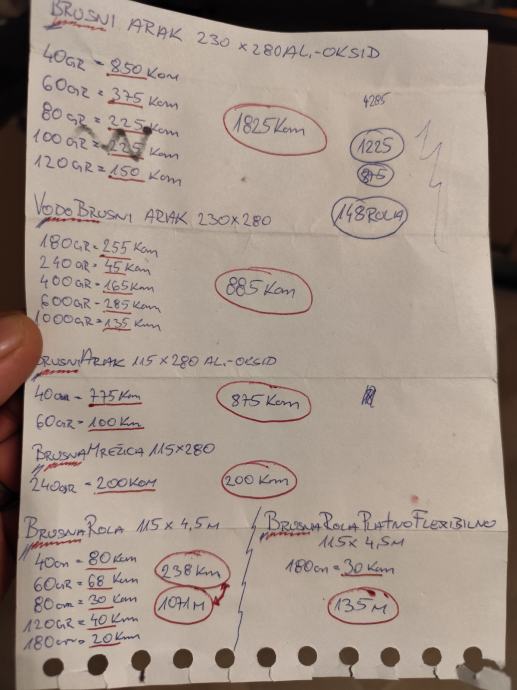 BRUSNI ARAK 230 x 280 AL,-OKSID
40GR = 850 Kom
60GR = 375 Kom
80GR = 225 Kom
100GR = 225 Kom
120GR = 150 Kom
1825 Kom
4285
1225
875
148 ROLA
VODOBRUSNI ARAK 230x280
180GR = 255 Kom
240GR - 45 Kom
400GR - 165 Kom
600GR - 285 Kom
1000GR = 135 Kom
885 Kom
BRUSNI ARAK 115 x 280 AL,-OKSID
40GR - 775 Kom
60GR - 100 Kom
875 Kom
BRUSNA MREŽICA 115x280
240GR - 200 KOM
200 Kom
BRUSNA ROLA 115 x 4,5 M
40GR = 80 Kom
60GR = 68 Kom
80GR = 30 Kom
120GR = 40 Kom
180GR = 20 Kom
238 Kom
1071 M
BRUSNA ROLA PLATNO FLEXIBILNO
115 x 4,5M
180GR = 30 Kom
135 M